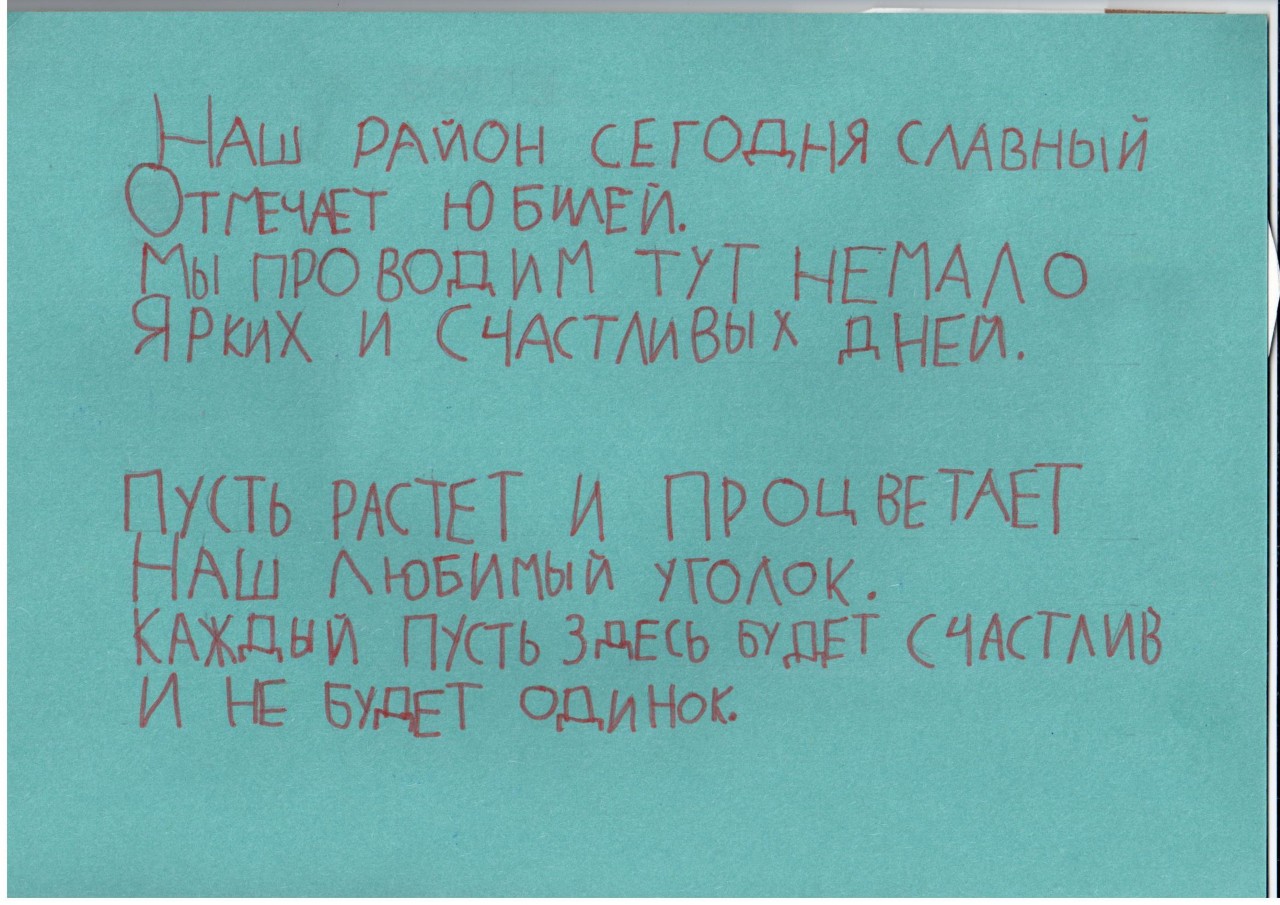 НАШ РАЙОН СЕГОДНЯ СЛАВНЫЙ
ОТМЕЧАЕТ ЮБИЛЕЙ.
МЫ ПРОВОДИМ ТУТ НЕМАЛО
ЯРКИХ И СЧАСТЛИВЫХ ДНЕЙ.
ПУСТЬ РАСТЕТ И ПРОЦВЕТАЕТ
НАШ ЛЮБИМЫЙ УГОЛОК.
КАЖДЫЙ ПУСТЬ ЗДЕСЬ БУДЕТ СЧАСТЛИВ
И НЕ БУДЕТ ОДИНОК.